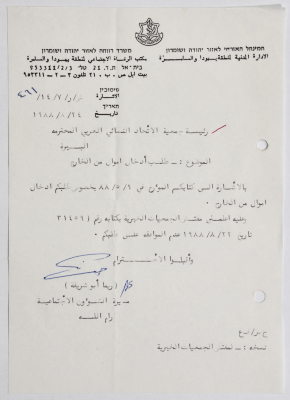 המינהל האזרחי לאזור יהודה ושומרון
الادارة المدنية لمنطقة يهودا والسامرة
משרד רווחה לאזור יהודה ושומרון
مكتب الرعاية الاجتماعي لمنطقة يهودا والسامرة
בית-אל ת.ד. 21 טל׳
بيت ايل ص.ب. ٢١ تلفون
סימוכין
الاشارة
תאריך
تاريخ ١٩٨٨/٨/٢٤
رئيسة - جمعية الاتحاد النسائي العربي المحترمة
البيرة
الموضوع : طلب أدخال اموال من الخارج
بالاشارة الى كتابكم المؤرخ في ٨٨/٥/٦ بخصوص طلبكم ادخال
اموال من الخارج .
مفتش الجمعيات الخيرية بكتابه رقم
تاريخ ١٩٨٨/٨/٢٢ عدم الموافقة على طلبكم .
وأقبلوا الاحترام
( ريما أبو شريفة )
مديرة الشؤون الاجتماعية
رام الله
نسخة : - مفتش الجمعيات الخيرية